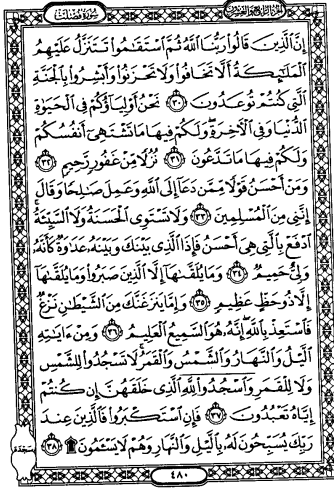 الجزء الرابع والعشرون سورة فصلت
إِنَّ ٱلَّذِينَ قَالُوا۟ رَبُّنَا ٱللَّهُ ثُمَّ ٱسْتَقَٰمُوا۟ تَتَنَزَّلُ عَلَيْهِمُ
ٱلْمَلَٰٓئِكَةُ أَلَّا تَخَافُوا۟ وَلَا تَحْزَنُوا۟ وَأَبْشِرُوا۟ بِٱلْجَنَّةِ
ٱلَّتِى كُنتُمْ تُوعَدُونَ ٣٠ نَحْنُ أَوْلِيَآؤُكُمْ فِى ٱلْحَيَوٰةِ
ٱلدُّنْيَا وَفِى ٱلْءَاخِرَةِ وَلَكُمْ فِيهَا مَا تَشْتَهِىٓ أَنفُسُكُمْ
وَلَكُمْ فِيهَا مَا تَدَّعُونَ ٣١ نُزُلًا مِّنْ غَفُورٍ رَّحِيمٍ ٣٢
وَمَنْ أَحْسَنُ قَوْلًا مِّمَّن دَعَآ إِلَى ٱللَّهِ وَعَمِلَ صَٰلِحًا وَقَالَ
إِنَّنِى مِنَ ٱلْمُسْلِمِينَ ٣٣ وَلَا تَسْتَوِى ٱلْحَسَنَةُ وَلَا ٱلسَّيِّئَةُ
ٱدْفَعْ بِٱلَّتِى هِىَ أَحْسَنُ فَإِذَا ٱلَّذِى بَيْنَكَ وَبَيْنَهُۥ عَدَٰوَةٌ كَأَنَّهُۥ
وَلِىٌّ حَمِيمٌ ٣٤ وَمَا يُلَقَّىٰهَآ إِلَّا ٱلَّذِينَ صَبَرُوا۟ وَمَا يُلَقَّىٰهَآ
إِلَّا ذُو حَظٍّ عَظِيمٍ ٣٥ وَإِمَّا يَنزَغَنَّكَ مِنَ ٱلشَّيْطَٰنِ نَزْغٌ
فَٱسْتَعِذْ بِٱللَّهِ إِنَّهُۥ هُوَ ٱلسَّمِيعُ ٱلْعَلِيمُ ٣٦ وَمِنْ ءَايَٰتِهِ
ٱلَّيْلُ وَٱلنَّهَارُ وَٱلشَّمْسُ وَٱلْقَمَرُ لَا تَسْجُدُوا۟ لِلشَّمْسِ
وَلَا لِلْقَمَرِ وَٱسْجُدُوا۟ لِلَّهِ ٱلَّذِى خَلَقَهُنَّ إِن كُنتُمْ
إِيَّاهُ تَعْبُدُونَ ٣٧ فَإِنِ ٱسْتَكْبَرُوا۟ فَٱلَّذِينَ عِندَ
رَبِّكَ يُسَبِّحُونَ لَهُۥ بِٱلَّيْلِ وَٱلنَّهَارِ وَهُمْ لَا يَسْـَٔمُونَ ۩ ٣٨
سجدة
٤٨٠